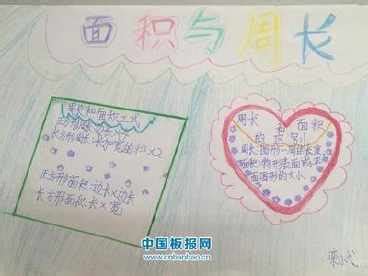 面积与周长
周长和面积公式
正方形周长=边长×4
长方形周长=(长+宽)×2
正方形面积=边长×边长
长方形面积=长×宽
周长和面积
的区别
周长:图形一周的长度
面积:物体表面或
平面图形的大小
中国板报网
www.cnbanbao.cn